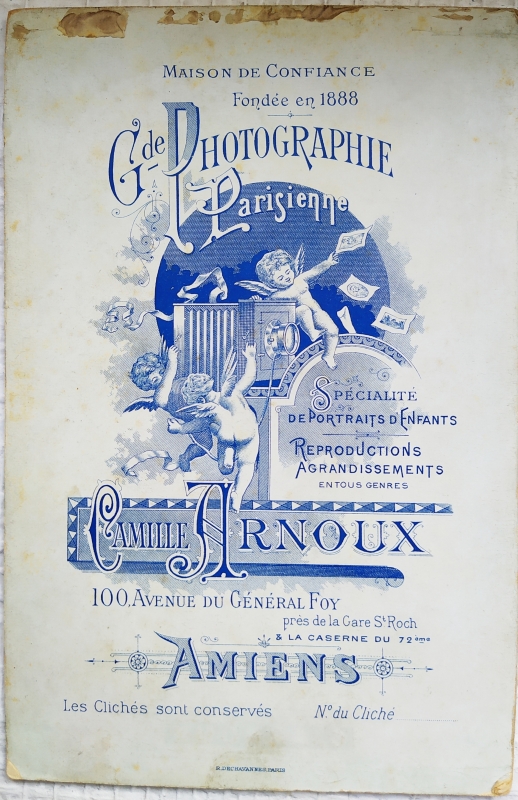 MAISON DE CONFIANCE
Fondée en 1888
Gde PHOTOGRAPHIE
Parisienne
SPÉCIALITÉ
DE PORTRAITS D'ENFANTS
REPRODUCTIONS
AGRANDISSEMENTS
EN TOUS GENRES
CAMILLE ARNOUX
100, AVENUE DU GÉNÉRAL FOY
près de la Gare St Roch
& LA CASERNE DU 72ème
AMIENS
Les Clichés sont conservés No. du Cliché
R. DECHAVANNES. PARIS